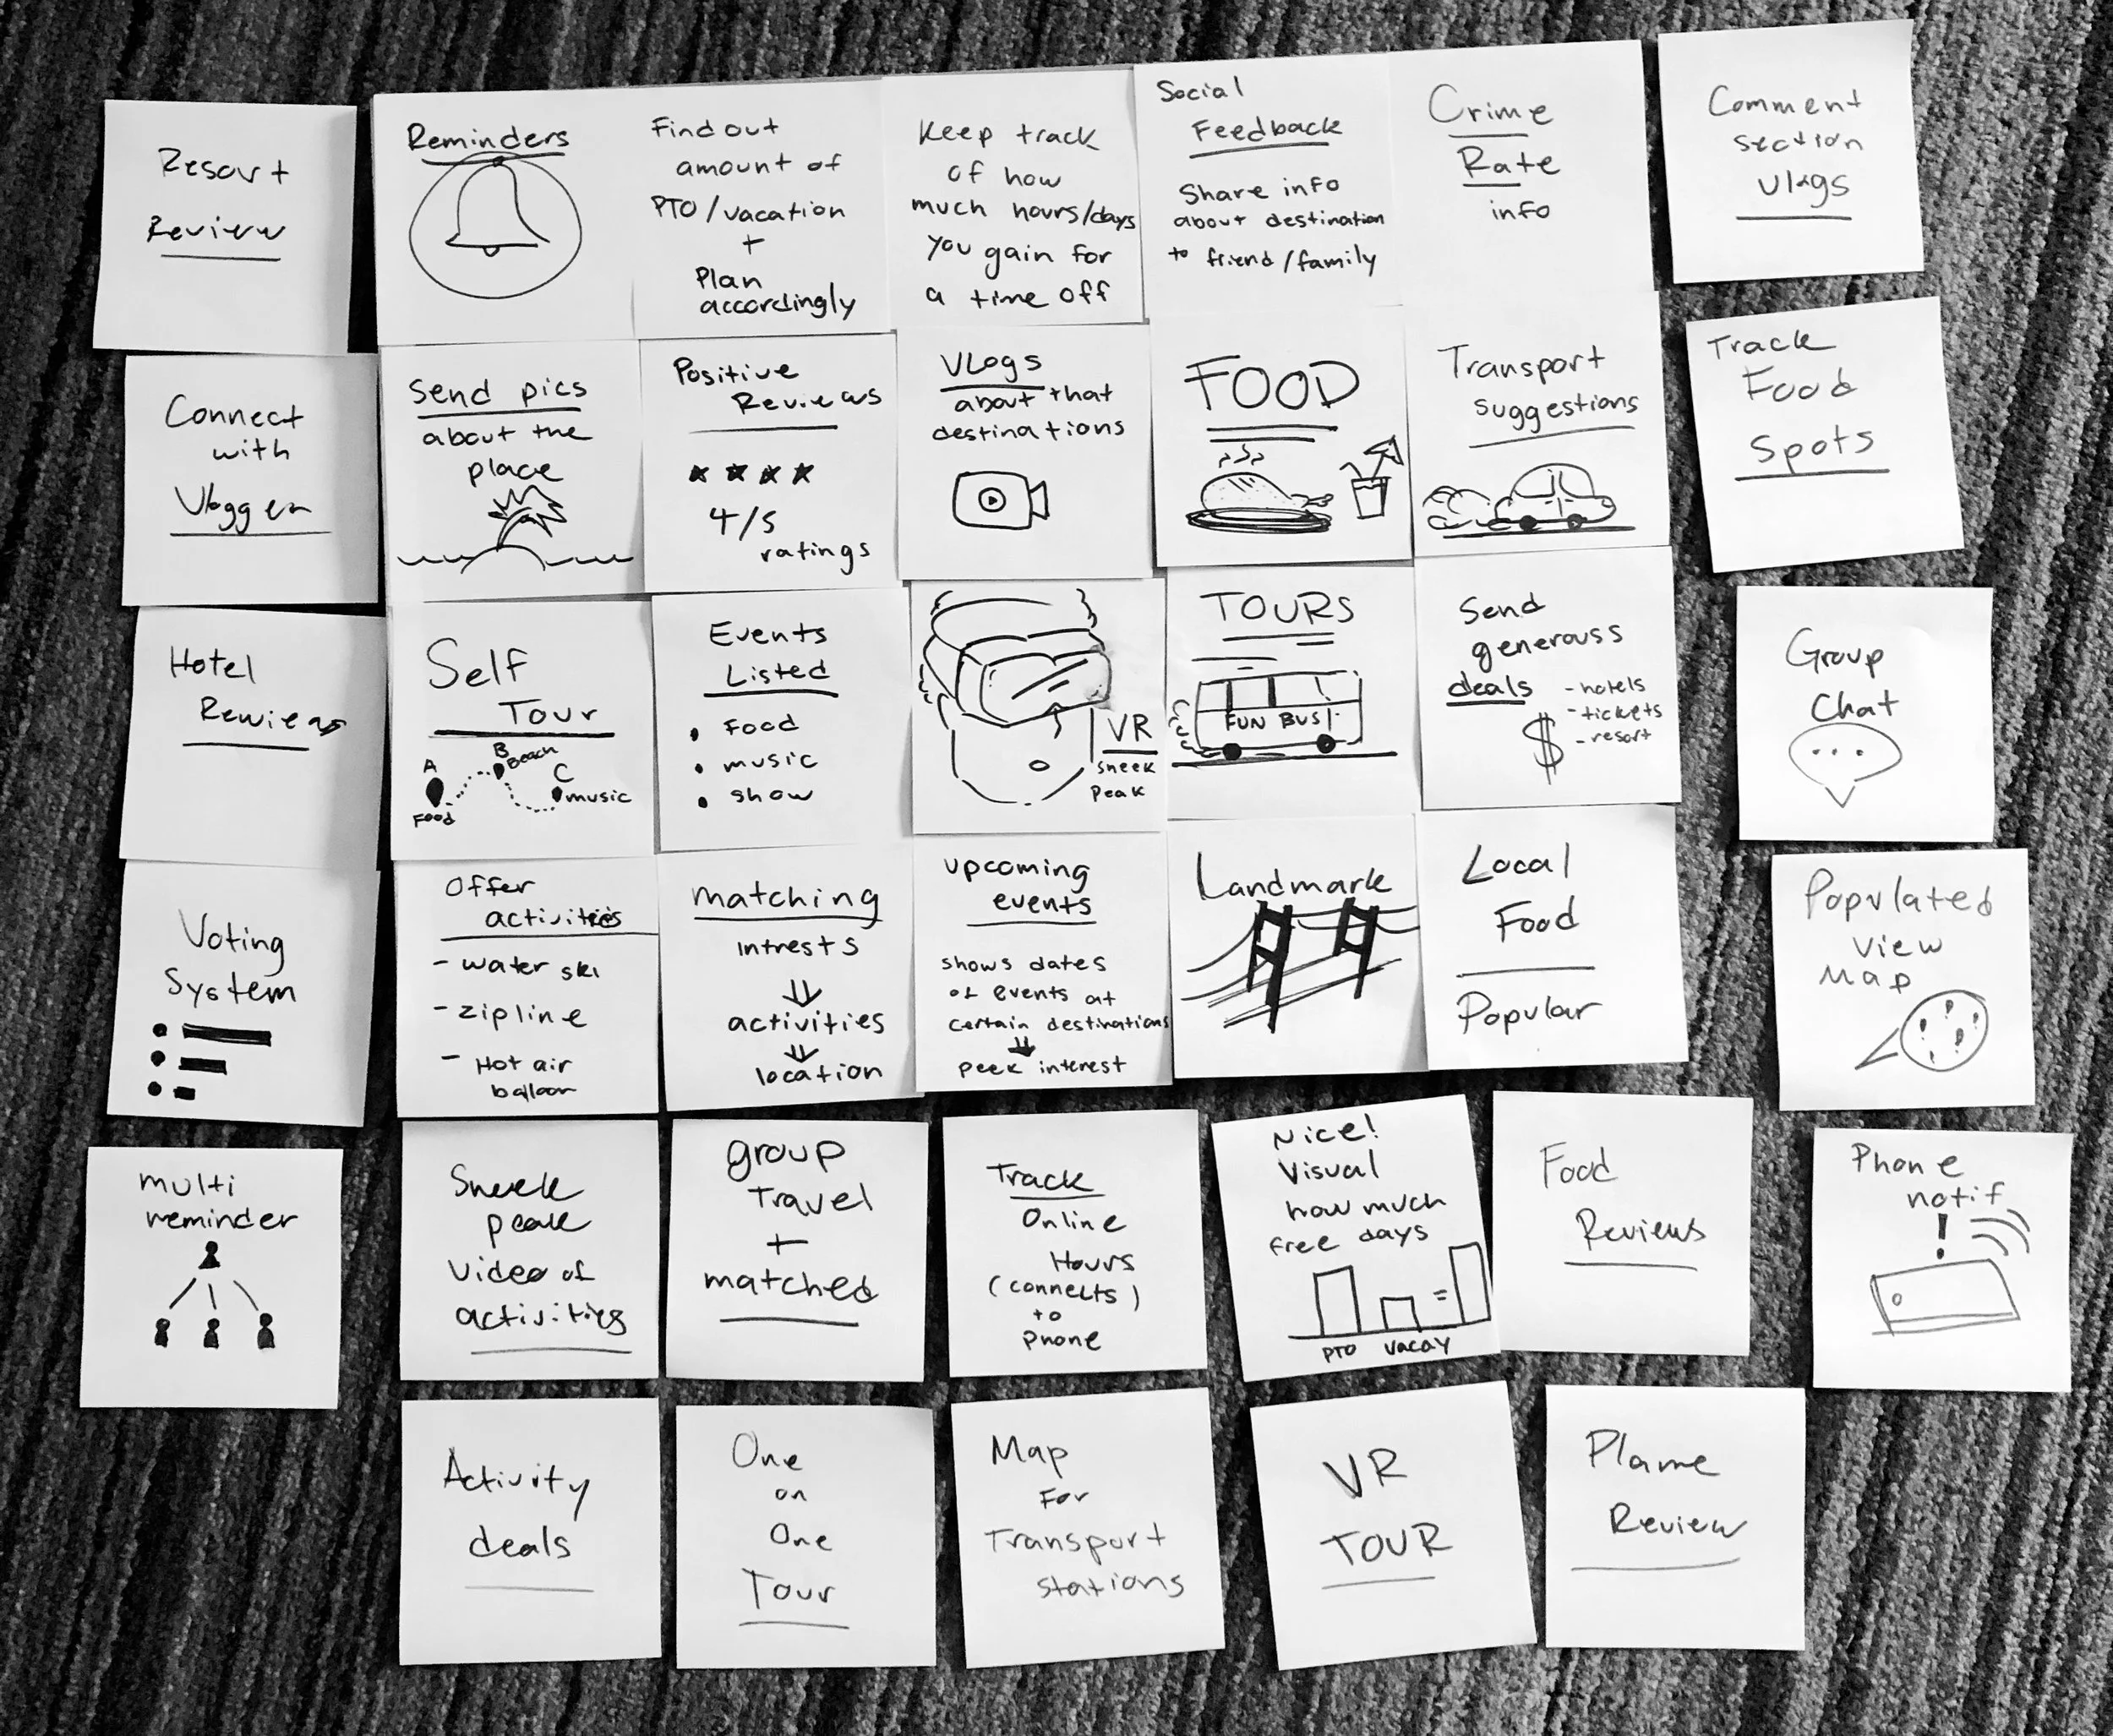 Resort
Review
Reminders
Find out
amount of
PTO/vacation
+
Plan
accordingly
Keep track
of how
much hours/days
you gain for
a time off
Social
Feedback
Share info
about destination
to friend/family
Crime
Rate
info
Comment
section
vlogs
Connect
with
Vlogger
Send pics
about the
place
Positive
Reviews
4/5
ratings
Vlogs
about that
destinations
FOOD
Transport
suggestions
Track
Food
Spots
Hotel
Reviews
Self
Tour
A
Food
B
Beach
C
music
Events
Listed
• Food
• music
• show
VR
sneek
peak
TOURS
FUN BUS!
Send
generouss
deals
- hotels
- tickets
- resort
$
Group
Chat
...
Voting
System
Offer
activities
- water ski
- zipline
- Hot air
balloon
matching
intrests
⇓
activities
⇓
location
upcoming
events
shows dates
of events at
certain destinations
⇓
peek interest
Landmark
Local
Food
Popular
Populated
view
Map
multi
reminder
Sneek
peak
video of
activities
group
Travel
+
matched
Track
Online
Hours
(connects)
to
phone
Nice!
Visual
how much
free days
=
PTO vacay
Food
Reviews
Phone
notif
!
Activity
deals
One
on
One
Tour
Map
For
Transport
stations
VR
TOUR
Review